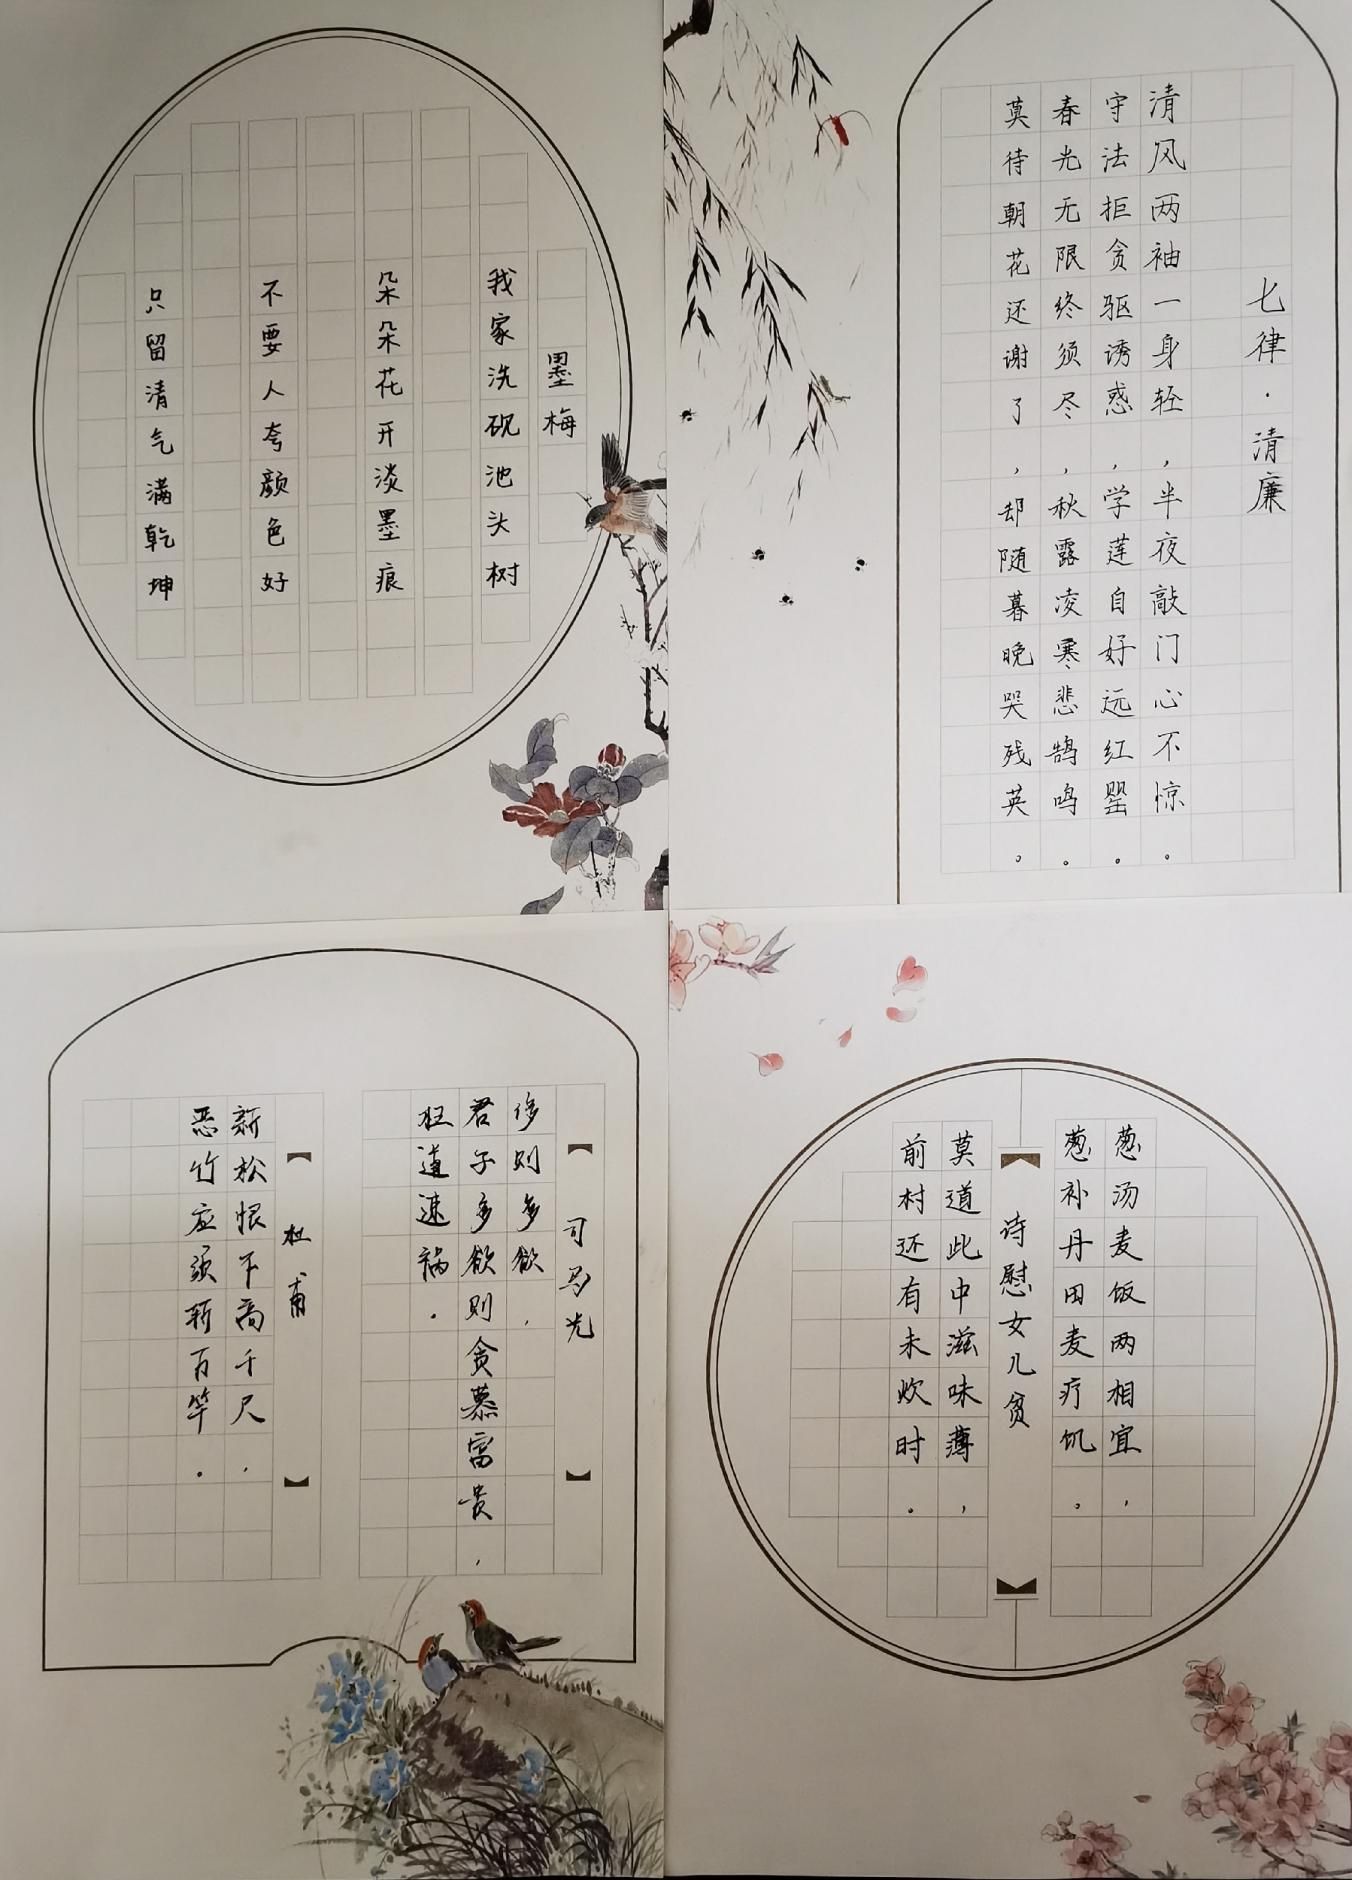 墨梅
我家洗砚池头树
朵朵花开淡墨痕
不要人夸颜色好
只留清气满乾坤
七律·清廉
清风两袖一身轻，半夜敲门心不惊。
守法拒贪驱诱惑，学莲自好远红罂。
春光无限终须尽，秋露凌寒悲鹄鸣。
莫待朝花还谢了，却随暮晚哭残英。
【司马光】
侈则多欲，
君子多欲则贪慕富贵，
枉道速祸。
【杜甫】
新松恨不高千尺，
恶竹应须斩百竿。
【诗慰女儿贫】
葱汤麦饭两相宜，
葱补丹田麦疗饥。
莫道此中滋味薄，
前村还有未炊时。